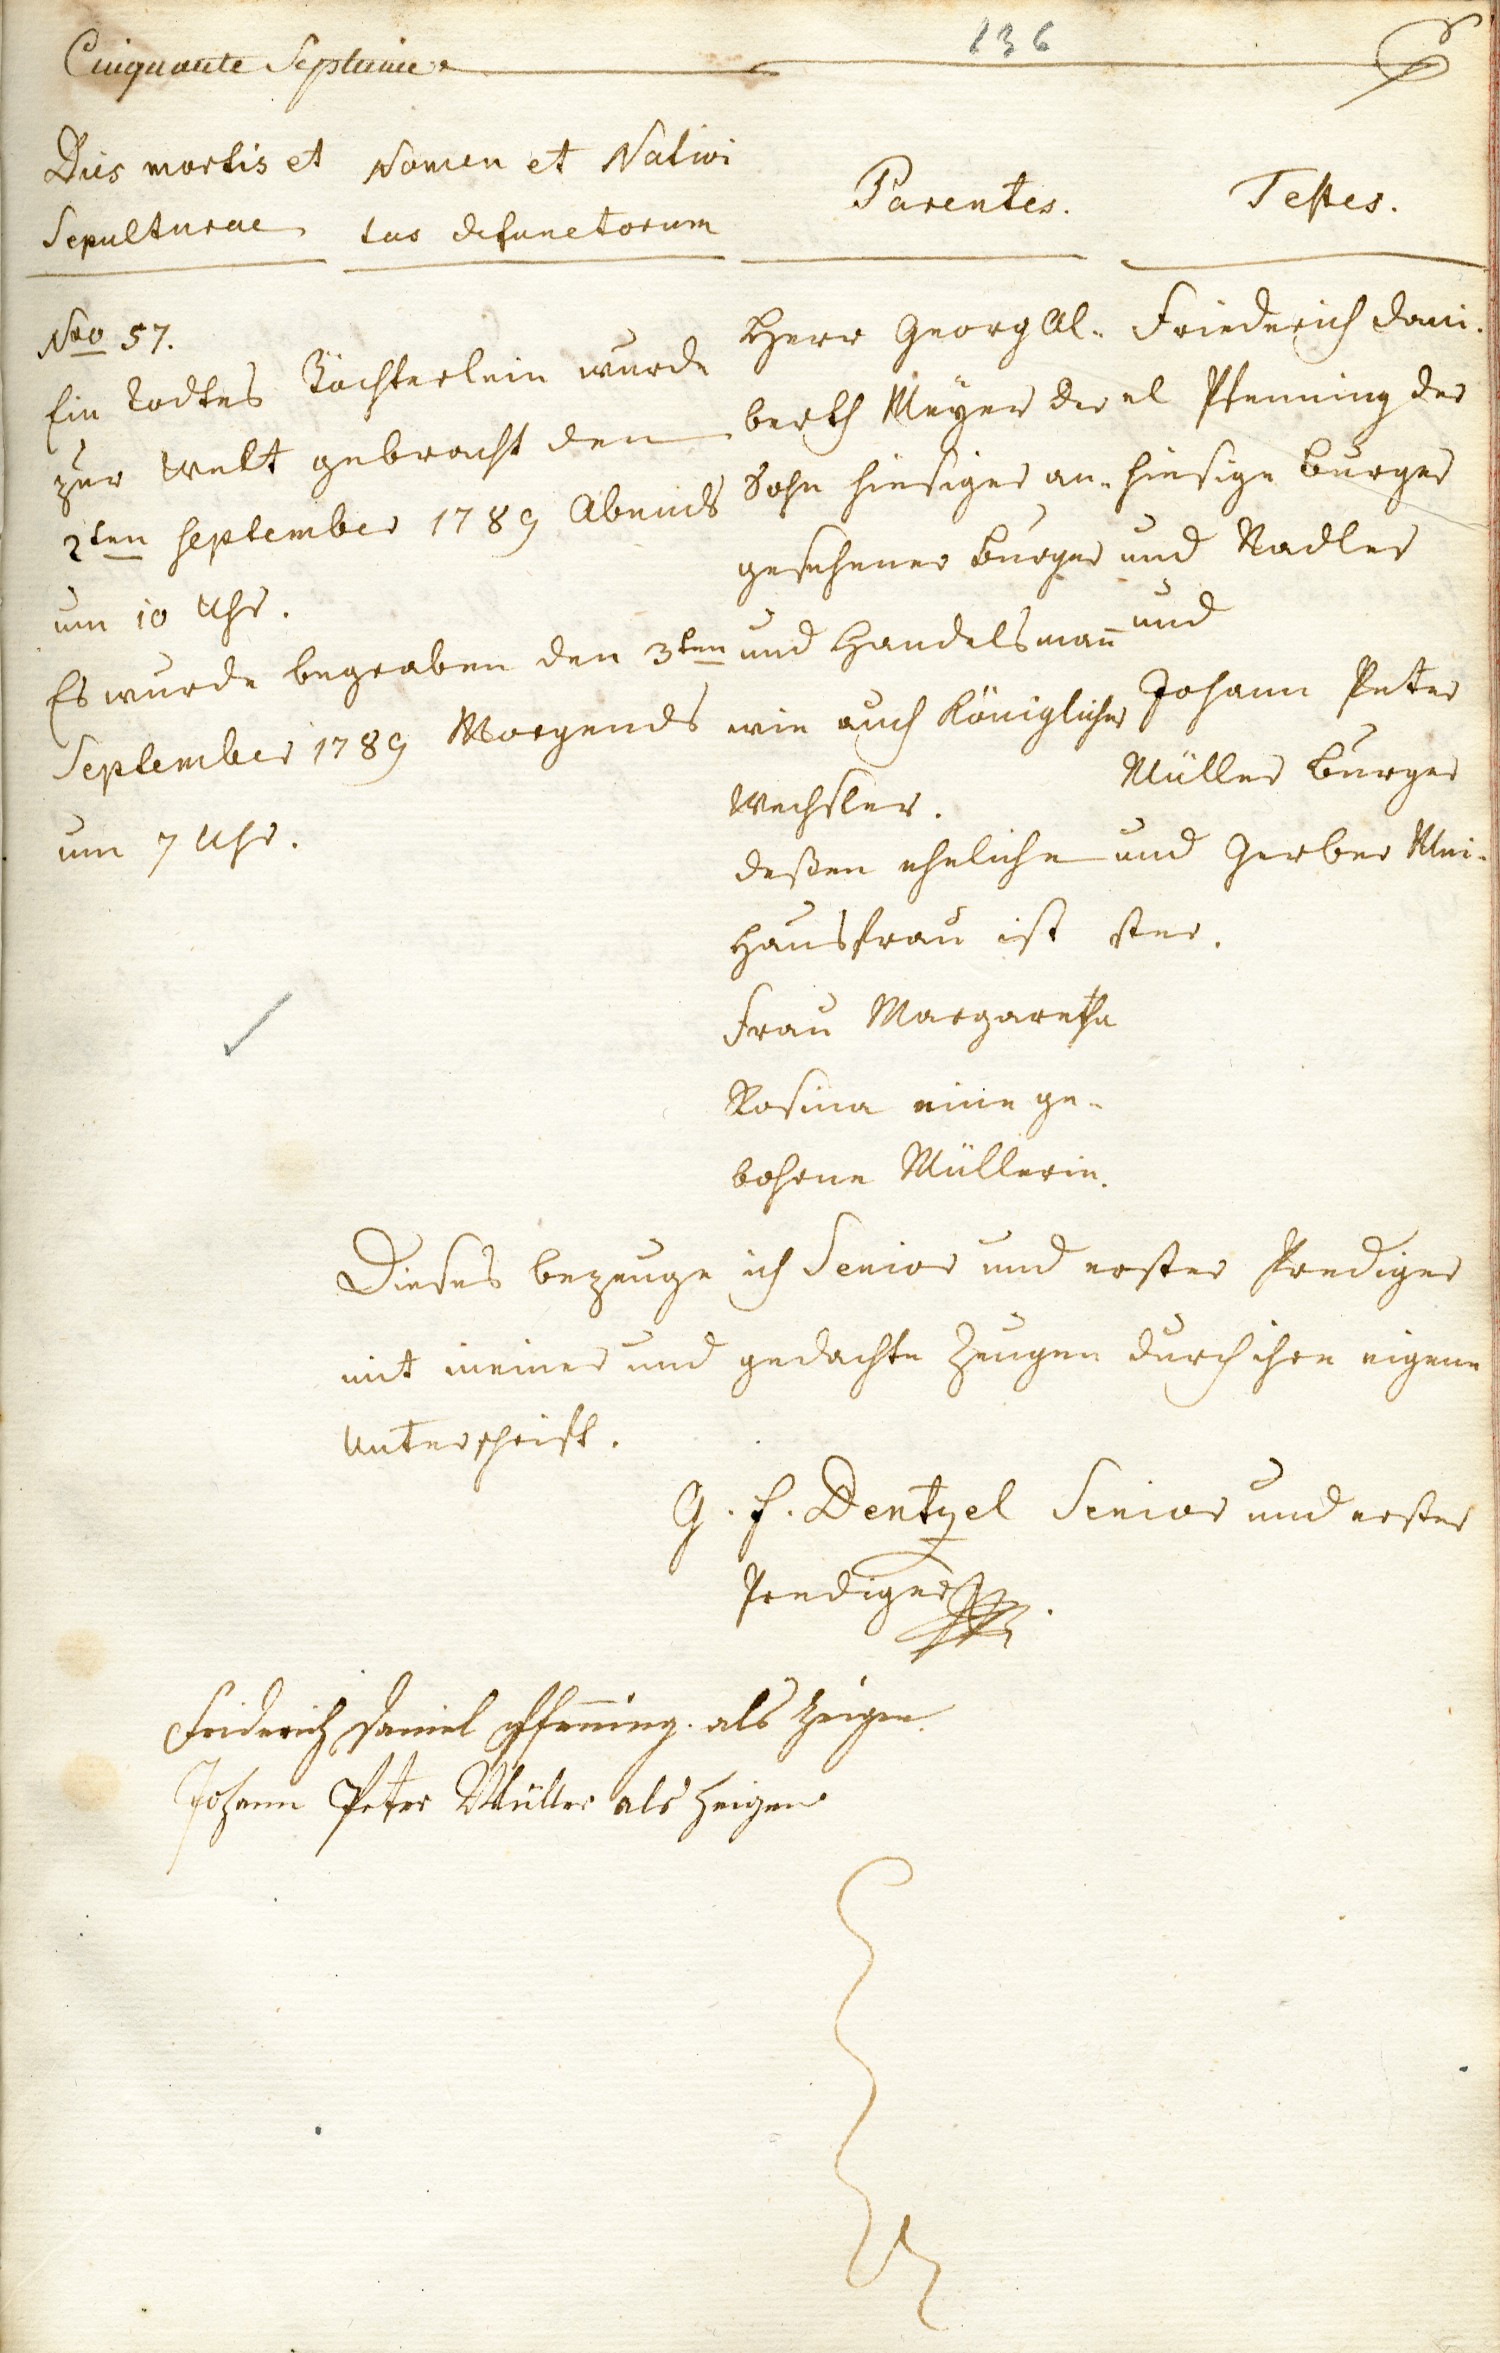 Cinquante Septieme
136
Dies mortis et
Sepulturae
Nomen et Nativi
tas defunctorum
Parentes.
Testes.
Nro 57.
Ein todtes Töchterlein wurde
zur Welt gebracht den
2ten September 1789 Abends
um 10 Uhr.
Es wurde begraben den 3ten
September 1789 Morgends
um 7 Uhr.
Herr Georg Al-
berth Meyer der
Sohn hiesiger an-
gesehener Burger
und Handelsman̄
wie auch Königlicher
Wechsler.
deßen eheliche
Hausfrau ist
Frau Margaretha
Rosina eine ge-
bohrne Müllerin.
Friederich Dani-
el Pfenning der
hiesige Burger
und Nadler
und
Johann Peter
Müller Burger
und Gerber Mei-
ster.
Dieses bezeuge ich Senior und erster Prediger
mit meiner und gedachte Zeugen durch ihre eigene
Unterschrift.
G. F. Dentzel Senior und erster
Prediger.
Friderich Daniel Pfen̄ing. als Zeigen.
Johann Peter Müller als Zeigen